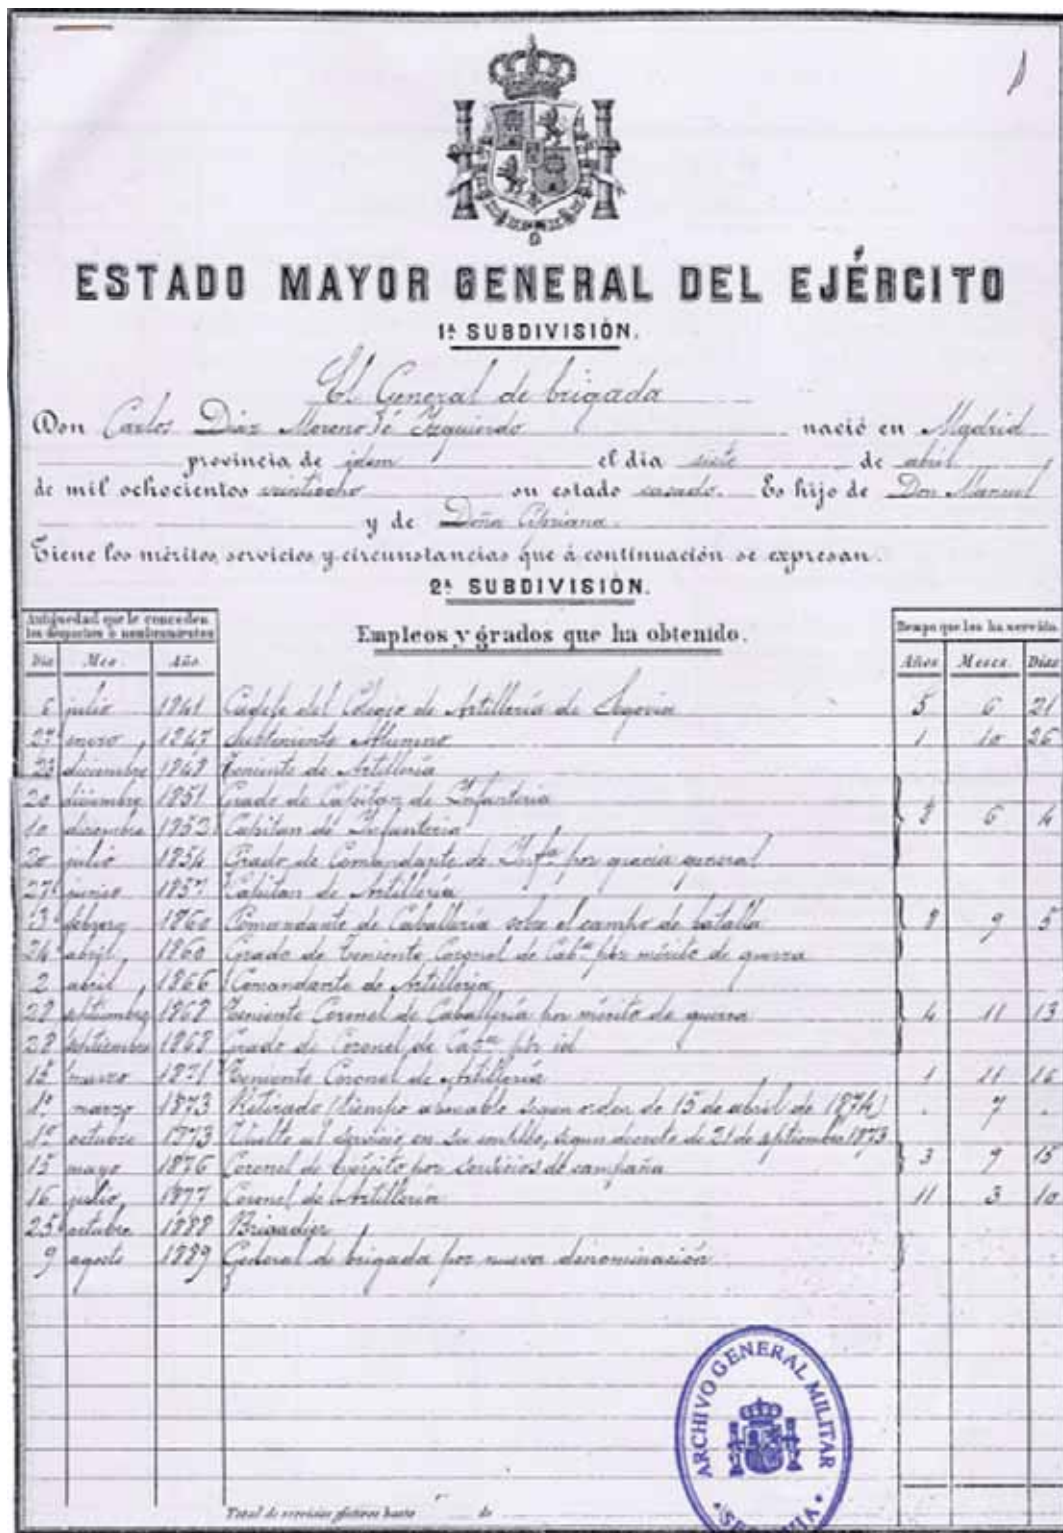 ESTADO MAYOR GENERAL DEL EJÉRCITO
1ª SUBDIVISIÓN.
El General de brigada
Don Carlos Díaz Moreno é Izquierdo nació en Madrid
provincia de idem el día siete de abril
de mil ochocientos veintiocho su estado casado. Es hijo de Don Manuel
y de Doña Cipriana.
Tiene los méritos, servicios y circunstancias que á continuación se expresan.
2ª SUBDIVISIÓN.
Antigüedad que le conceden los despachos ó nombramientos Empleos y grados que ha obtenido. Tiempo que los ha servido
Día Mes Año Años Meses Días
6 julio 1841 Cadete del Colegio de Artillería de Segovia 5 6 21
27 enero 1847 Subteniente Alumno 1 10 26
23 diciembre 1848 Teniente de Artillería
20 diciembre 1851 Grado de Capitan de Infantería
10 diciembre 1853 Capitan de Infantería 8 6 4
20 julio 1854 Grado de Comandante de Infª por gracia general
27 junio 1857 Capitan de Artillería
13 febrero 1860 Comandante de Caballería sobre el campo de batalla 8 9 5
24 abril 1860 Grado de Teniente Coronel de Cabª por mérito de guerra
2 abril 1866 Comandante de Artillería
28 septiembre 1868 Teniente Coronel de Caballería por mérito de guerra 4 11 13
28 septiembre 1868 Grado de Coronel de Cabª por id
15 marzo 1871 Teniente Coronel de Artillería 1 11 16
1º marzo 1873 Retirado (tiempo abonable segun orden de 15 de abril de 1874) . 7 .
1º octubre 1873 Vuelto al servicio en su empleo, segun decreto de 21 de septiembre 1873
15 mayo 1876 Coronel de Ejército por servicios de campaña 3 9 15
16 julio 1877 Coronel de Artillería 11 3 10
25 octubre 1888 Brigadier
9 agosto 1889 General de brigada por nueva denominación
Total de servicios efectivos hasta de
ARCHIVO GENERAL MILITAR
• SEGOVIA •